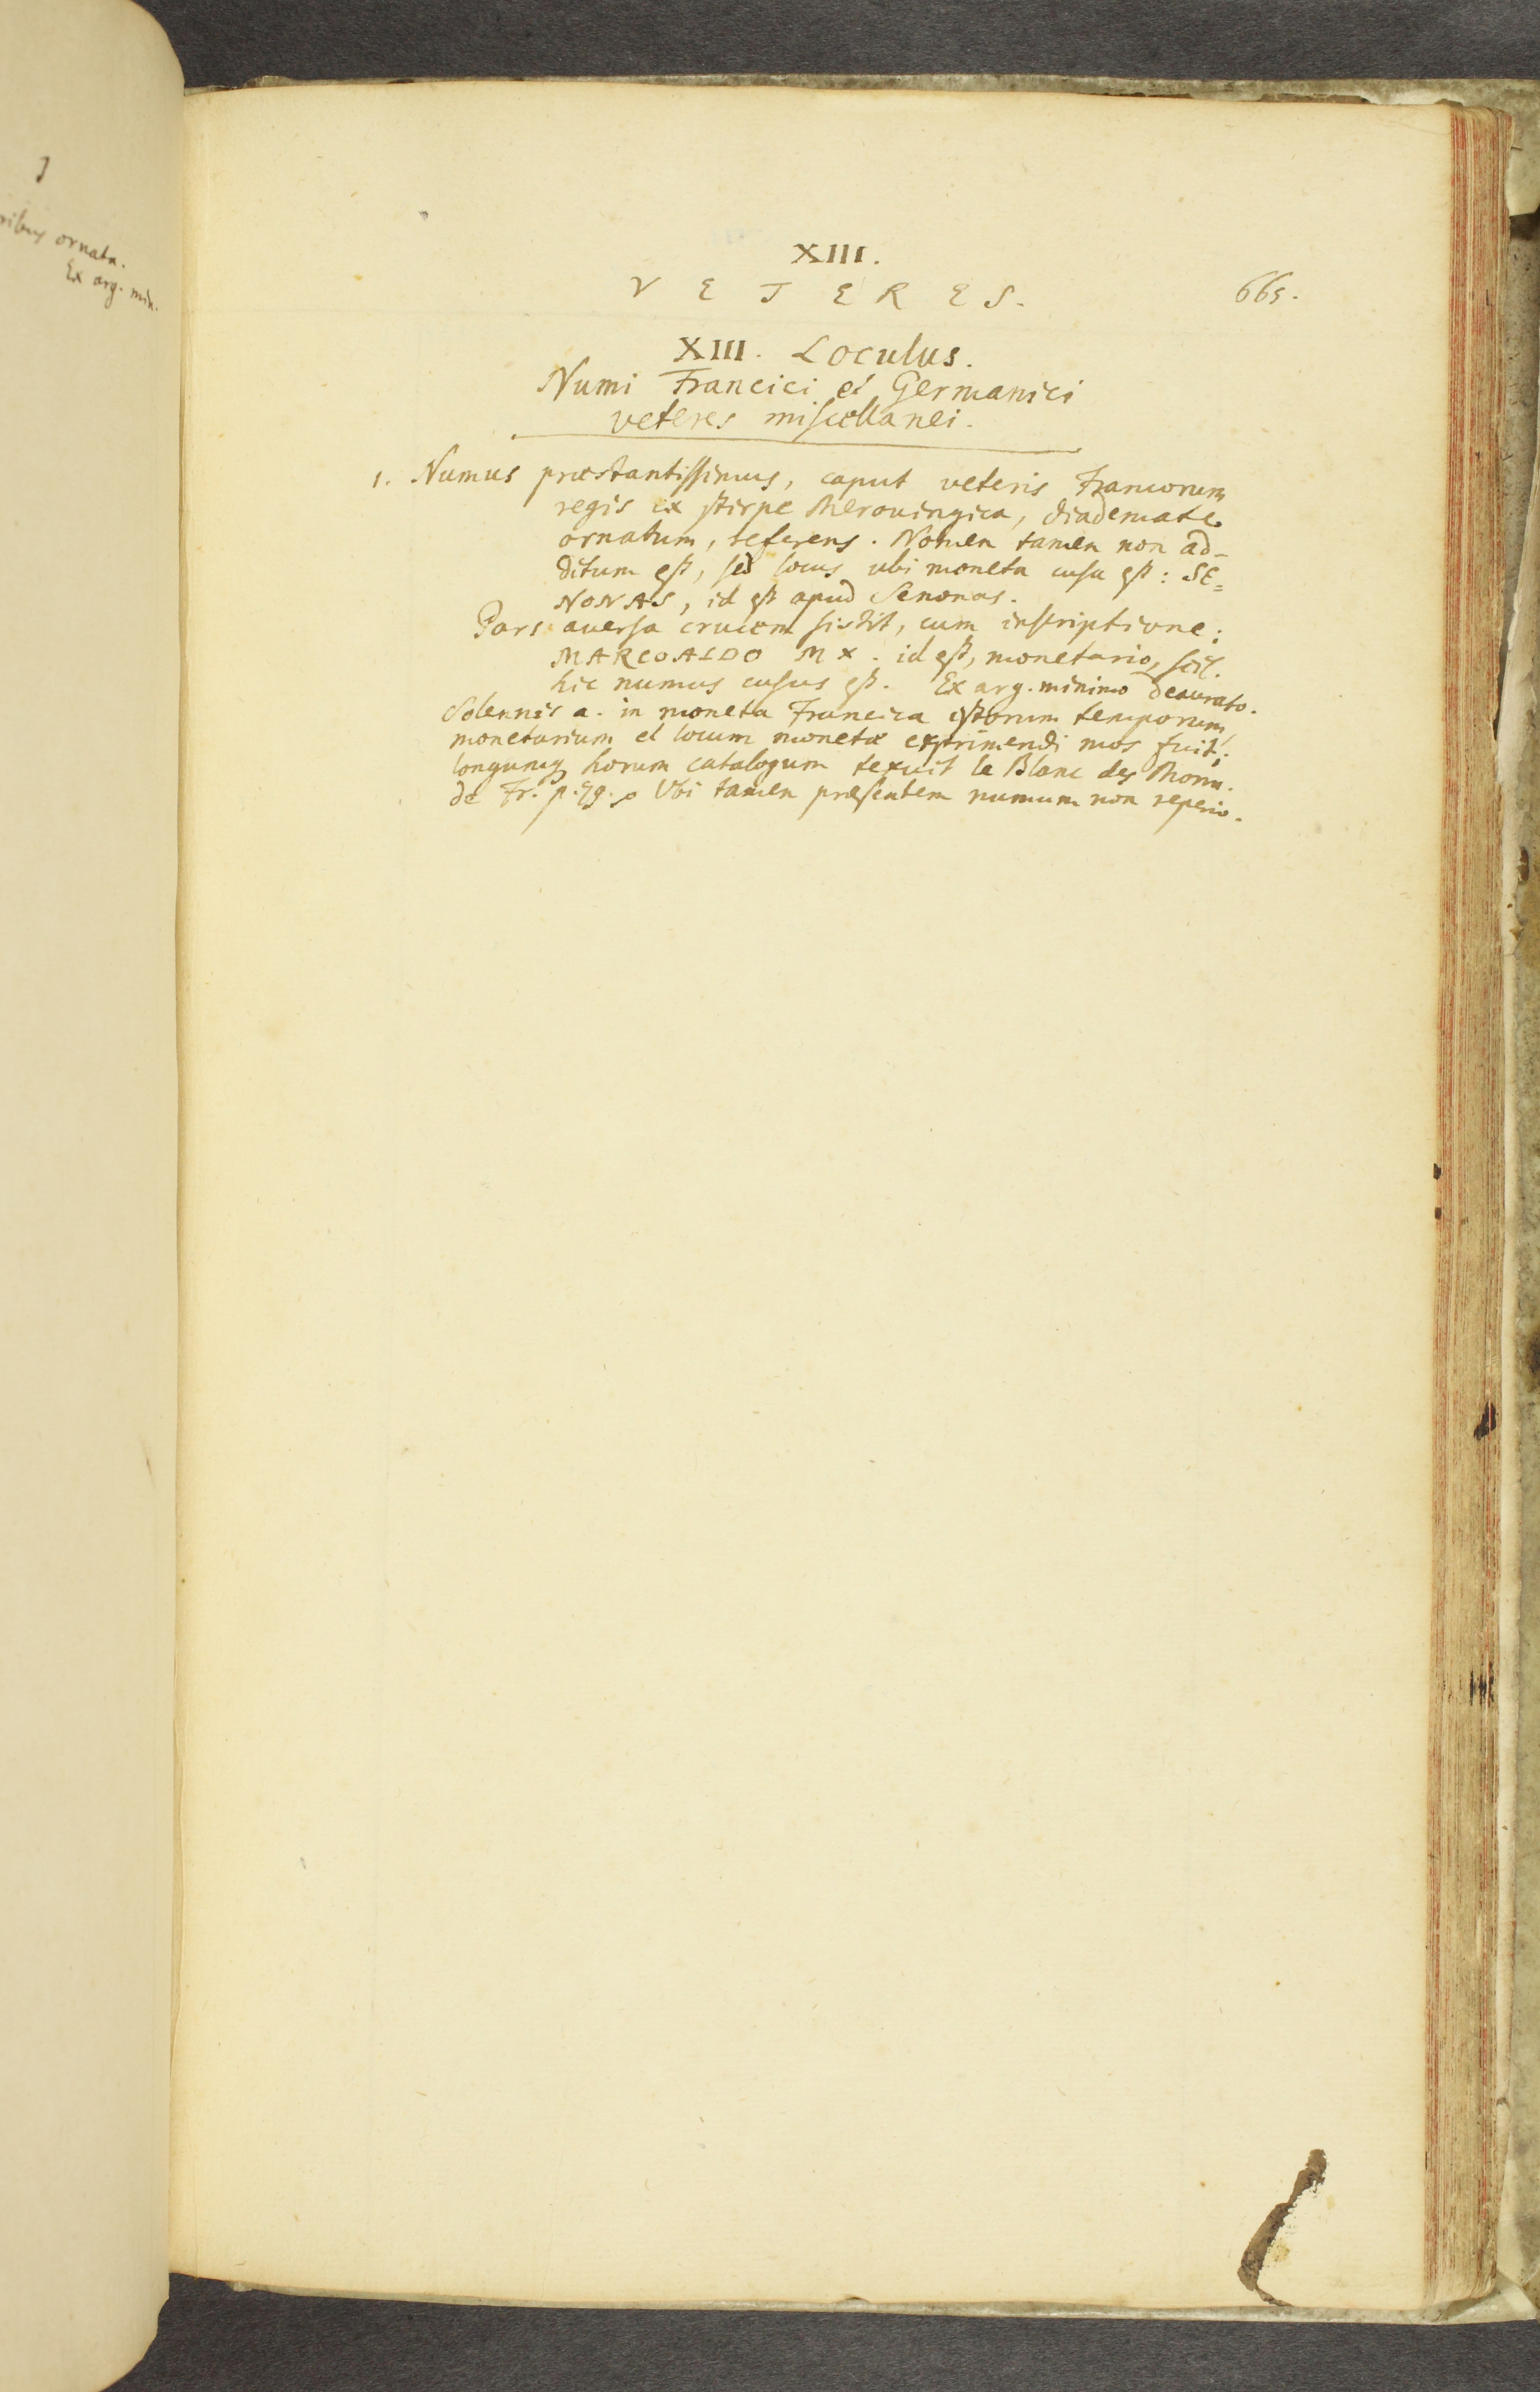 ribus ornata.
Ex arg. min.
XIII.
VETERES.
665.
XIII. Loculus.
Numi Francici et Germanici
veteres miscellanei.
1. Numus præstantissimus, caput veteris Francorum
regis ex stirpe Merovingica, diademate
ornatum, referens. Nomen tamen non ad-
ditum est, sed locus ubi moneta cusa est: SE=
NONAS, id est apud Senonas.
Pars aversa crucem sistit, cum inscriptione:
MARCOALDO M x. id est, monetario, scil.
hic numus cusus est. Ex arg. minimo deaurato.
Solennis a. in moneta Francica istorum temporum,
monetarium et locum monetæ exprimendi mos fuit;
longumq horum catalogum texuit le Blanc des Monn.
de Fr. p. Ubi tamen præsentem numum non reperio.